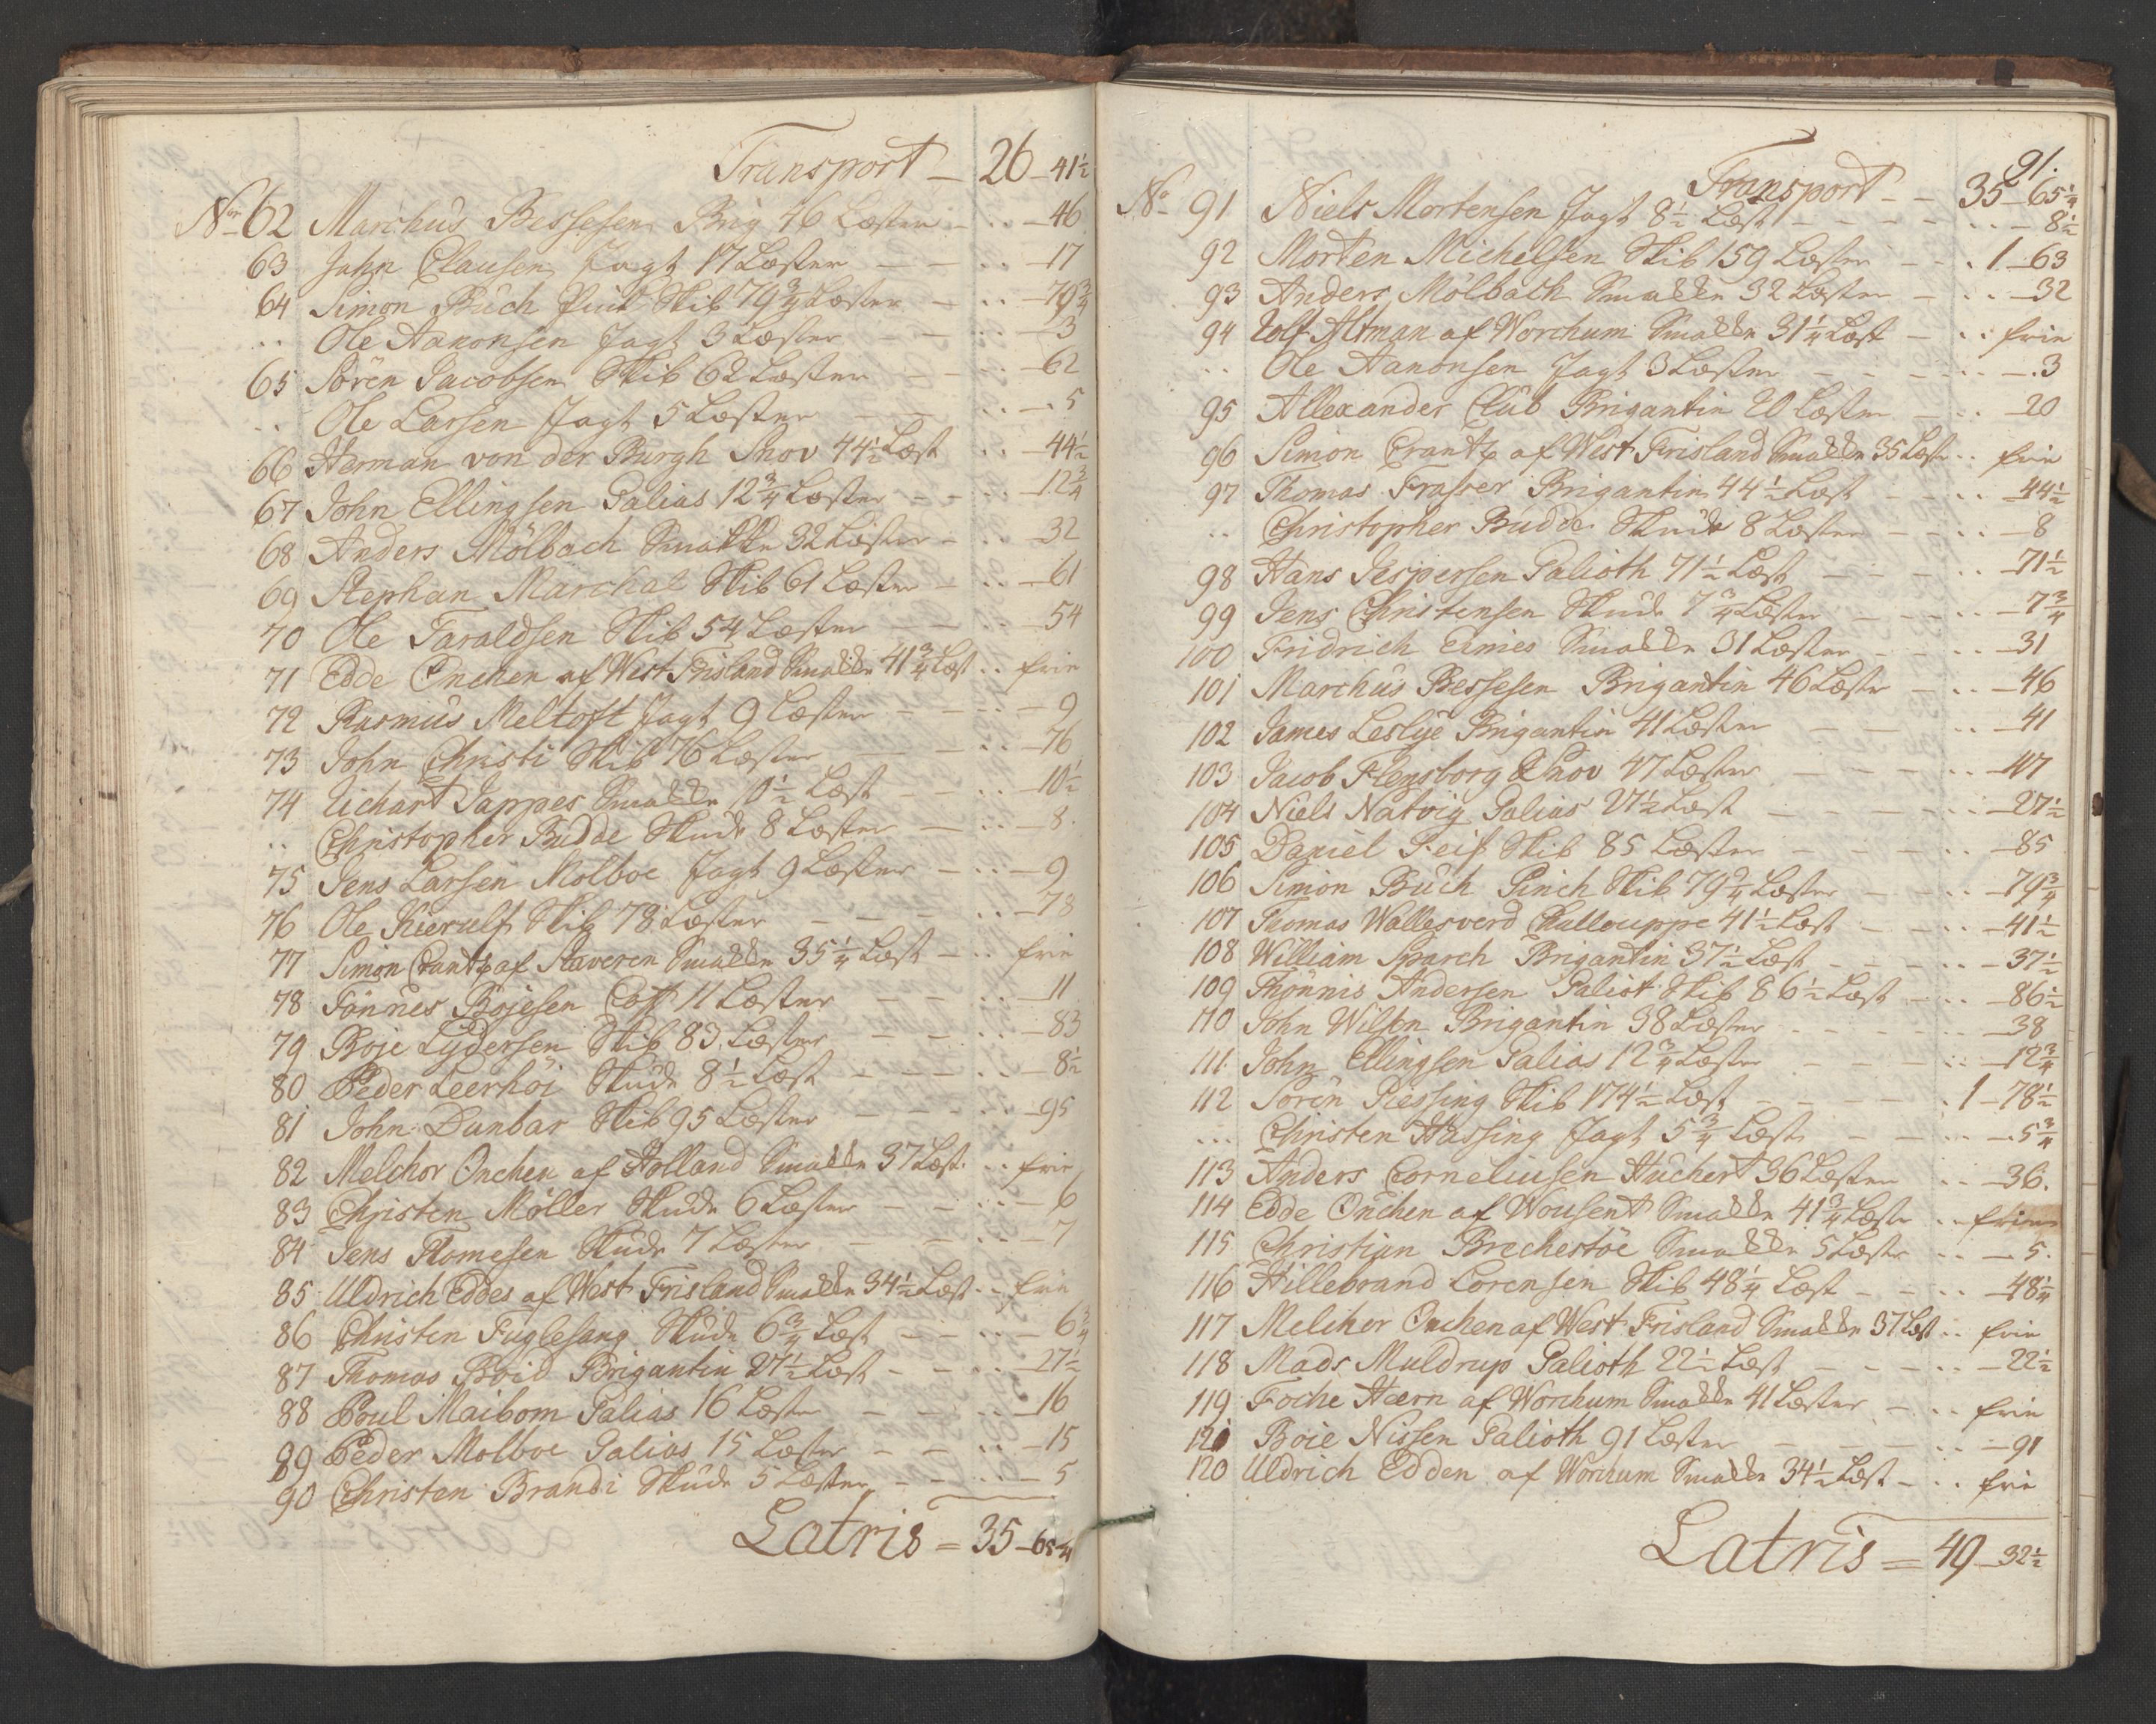 Transport — 26 — 41½
No 62 Marchus Bessesen Brig 46 Læster — — 46
63 John Clausen Jagt 17 Læster — — 17
64 Simon Buch Pink Skib 79¾ Læster — — 79¾
.. Ole Aanonsen Jagt 3 Læster — — 3
65 Sören Jacobsen Skib 62 Læster — — 62
.. Ole Larsen Jagt 5 Læster — — 5
66 Herman von der Burgh Snov 44½ Læst — 44½
67 John Ellingsen Galias 12¾ Læster — — 12¾
68 Anders Mölbach Smakke 32 Læster — — 32
69 Stephan Marchal Skib 61 Læster — — 61
70 Ole Taraldsen Skib 54 Læster — — 54
71 Edde Onchen af West Frisland Smakke 41¾ Læst .. frie
72 Rasmus Meltoft Jagt 9 Læster — — 9
73 John Christi Skib 76 Læster — — 76
74 Uichart Jappes Smakke 10½ Læst — — 10½
.. Christopher Budde Skude 8 Læster — — 8
75 Jens Larsen Molboe Jagt 9 Læster — — 9
76 Ole Kierulf Skib 78 Læster — — 78
77 Simon Crantz af Staveren Smakke 35¼ Læst — .. frie
78 Tönnes Bojesen Coff 11 Læster — — 11
79 Boje Lydersen Skib 83 Læster — — 83
80 Peder Leerhöi Skude 8½ Læst — — 8½
81 John Dunbar Skib 95 Læster — — 95
82 Melchor Onchen af Holland Smakke 37 Læst .. frie
83 Christen Möller Skude 6 Læster — — 6
84 Jens Thomesen Skude 7 Læster — — 7
85 Uldrich Eddes af West Frisland Smakke 34½ Læst .. frie
86 Christen Fuglesang Skude 6¾ Læst — — 6¾
87 Thomas Boid Brigantin 27½ Læst — — 27½
88 Poul Maibom Galias 16 Læster — — 16
89 Peder Molboe Galias 15 Læster — — 15
90 Christen Brandi Skude 5 Læster — — 5
Latris = 35 — 65¼
91.
Transport — — 35 — 65¼
No 91 Niels Mortensen Jagt 8½ Læst — — 8½
92 Morten Michelsen Skib 159 Læster — 1 — 63
93 Anders Mölbach Smakke 32 Læster — — 32
94 Uolf Altman af Worchum Smakke 31¼ Læst — .. frie
.. Ole Aanonsen Jagt 3 Læster — — 3
95 Allexander Club Brigantin 20 Læster — — 20
96 Simon Crantz af West Frisland Smakke 35 Læst .. frie
97 Thomas Frasser Brigantin 44½ Læst — — 44½
.. Christopher Budde Skude 8 Læster — — 8
98 Hans Jespersen Galioth 71½ Læst — — 71½
99 Jens Christensen Skude 7¾ Læster — — 7¾
100 Fridrich Eimes Smakke 31 Læster — — 31
101 Marchus Bessesen Brigantin 46 Læster — — 46
102 James Leslye Brigantin 41 Læster — — 41
103 Jacob Flensborg Snov 47 Læster — — 47
104 Niels Natvig Galias 27½ Læst — — 27½
105 Daniel Feif Skib 85 Læster — — 85
106 Simon Buch Pinch Skib 79¾ Læster — — 79¾
107 Thomas Wallesverd Challouppe 41½ Læst — — 41½
108 William Sparch Brigantin 37½ Læst — — 37½
109 Thönnis Andersen Galiot Skib 86½ Læst — — 86½
110 John Wilson Brigantin 38 Læster — — 38
111 John Ellingsen Galias 12¾ Læster — — 12¾
112 Sören Giessing Skib 174½ Læst — 1 — 78½
... Christen Hassing Jagt 5¾ Læst — — 5¾
113 Anders Corneliusen Huchert 36 Læster — 36.
114 Edde Onchen af Wousent Smakke 41¾ Læster .. frie
115 Christian Brechestöe Smakke 5 Læster — 5.
116 Hillebrand Lorensen Skib 48¼ Læst — — 48¼
117 Melchor Onchen af West Frisland Smakke 37 Læst .. frie
118 Mads Muldrup Galioth 22½ Læst — — 22½
119 Foche Hærn af Worchum Smakke 41 Læster — .. frie
121 Boie Nissen Galioth 91 Læster — — 91
120 Uldrich Edden af Worchum Smakke 34½ Læst — .. frie
Latris = 49 — 32½